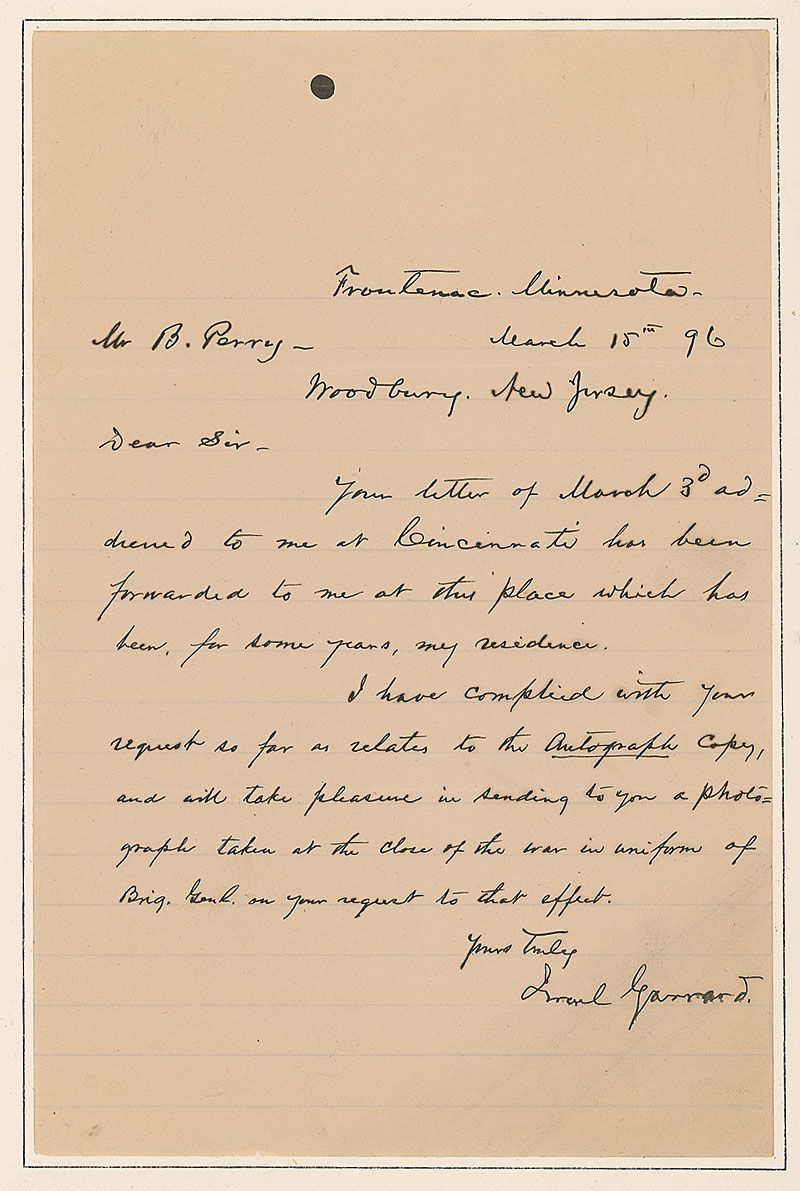 Frontenac. Minnesota -
Mr B. Perry - March 15th 96
Woodbury. New Jersey.
Dear Sir -
Your letter of March 3d ad=
dressed to me at Cincinnati has been
forwarded to me at this place which has
been, for some years, my residence.
I have complied with your
request so far as relates to the Autograph Copy,
and will take pleasure in sending to you a photo=
graph taken at the close of the war in uniform of
Brig. Genl. on your request to that effect.
Yours truly
Israel Garrard.